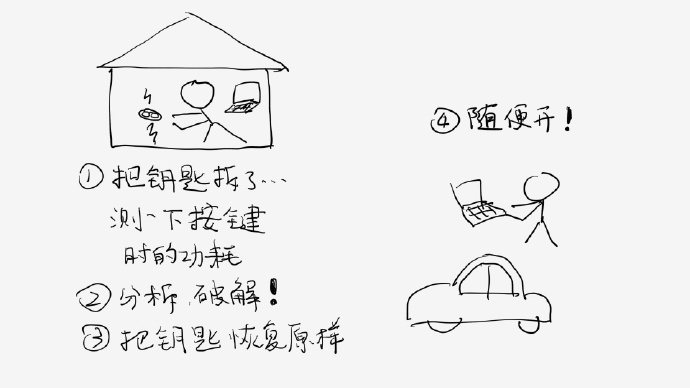 ① 把钥匙拆了…
测一下按键
时的功耗
② 分析、破解！
③ 把钥匙恢复原样
④ 随便开！